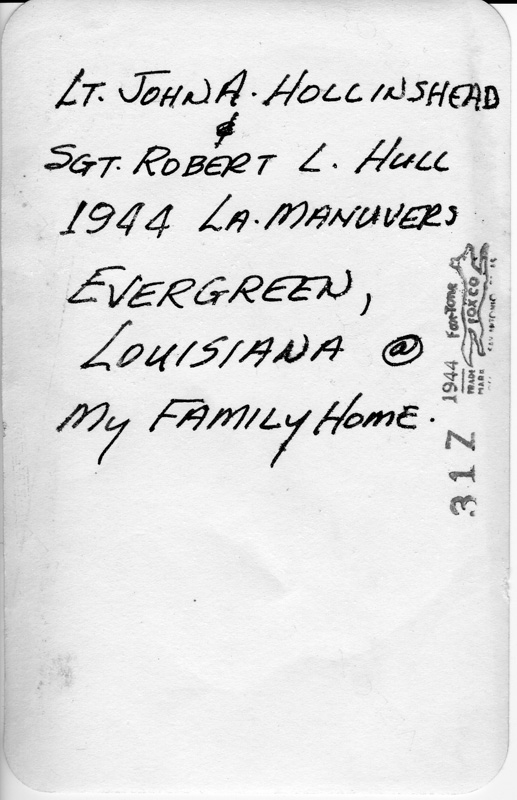 LT. JOHN A. HOLLINSHEAD
&
SGT. ROBERT L. HULL
1944 LA. MANUVERS
EVERGREEN,
LOUISIANA @
MY FAMILY HOME.
31Z
1944
Fox-Tone
FOX CO
TRADE
MARK
SAN ANTONIO